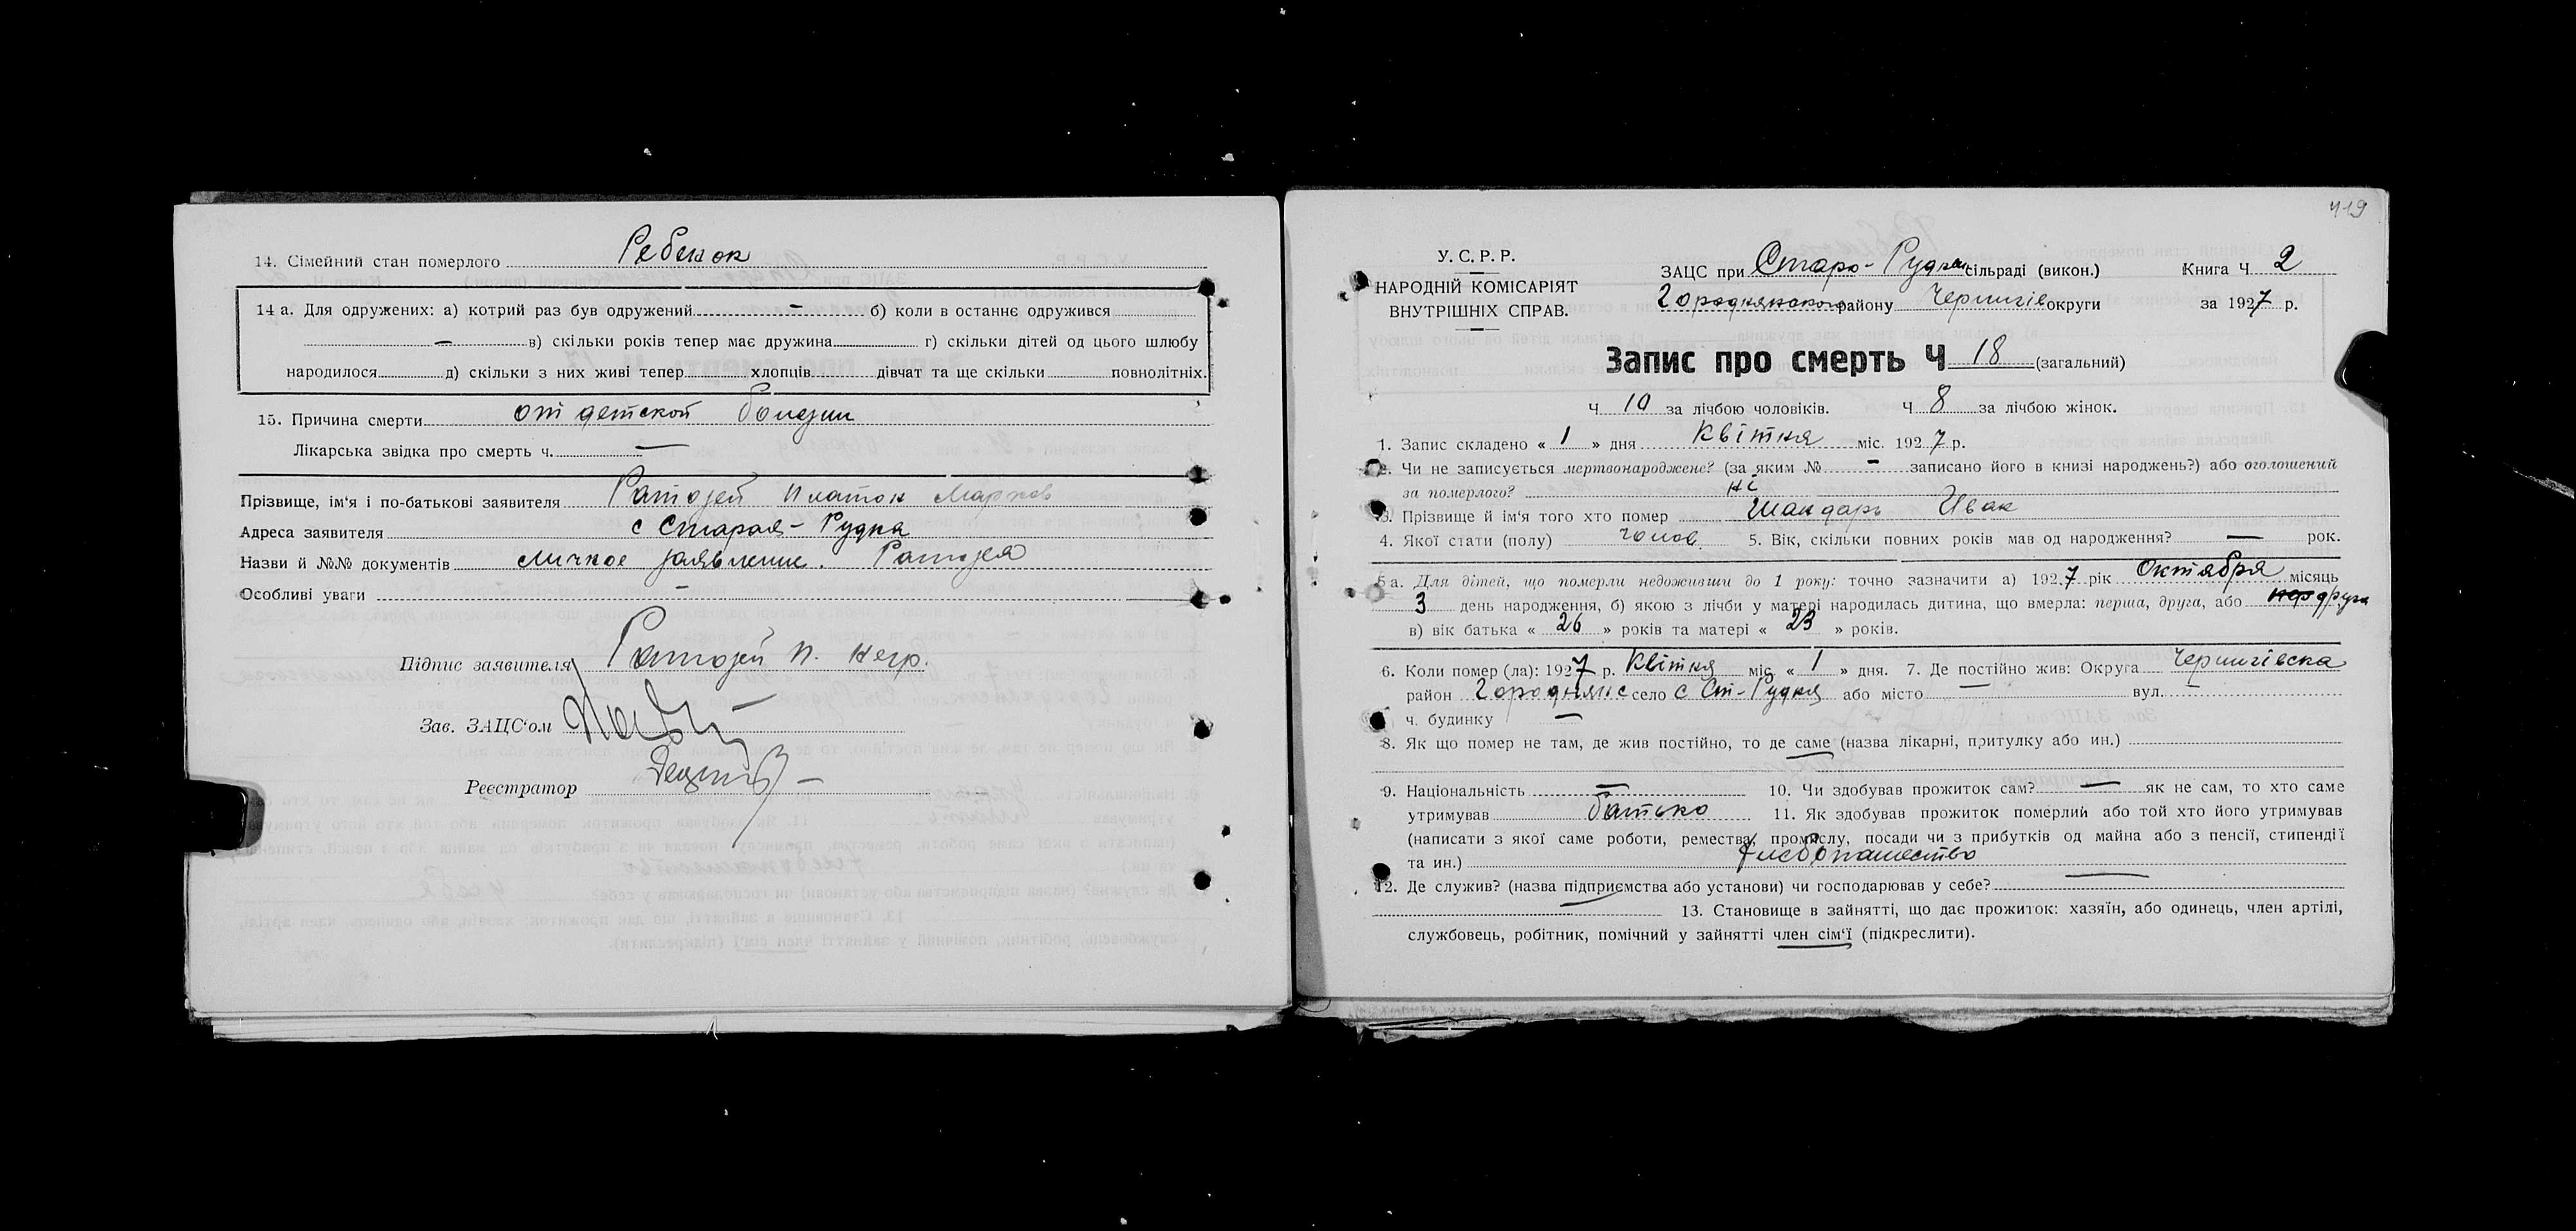 14. Сімейний стан померлого Ребенок
14 а. Для одружених: а) котрий раз був одружений - б) коли в останнє одружився
— в) скільки років тепер має дружина г) скільки дітей од цього шлюбу
народилося д) скільки з них живі тепер хлопців дівчат та ще скільки повнолітніх.
15. Причина смерти от детской болезни
Лікарська звідка про смерть ч. —
Прізвище, ім'я і по-батькові заявителя Ратозей Платон Марков
Адреса заявителя с Старая-Рудка
Назви й №№ документів личное заявление. Ратозея
Особливі уваги —
Підпис заявителя Ратозей П. негр.
Зав. ЗАЦС'ом
Реєстратор
419
У. С. Р. Р.
НАРОДНІЙ КОМІСАРІЯТ
ВНУТРІШНІХ СПРАВ.
ЗАЦС при Старо-Рудкан сільраді (викон.) Книга Ч 2
Городнянского району Чернигів округи за 1927 р.
Запис про смерть Ч 18 (загальний)
Ч 10 за лічбою чоловіків. Ч 8 за лічбою жінок.
1. Запис складено « 1 » дня Квітня міс. 1927 р.
2. Чи не записується мертвонароджене? (за яким № - записано його в книзі народжень?) або оголошений
за померлого? ні
3. Прізвище й ім'я того хто помер Шандарь Иван
4. Якої стати (полу) Чолов. 5. Вік, скільки повних років мав од народження? — рок.
5 а. Для дітей, що померли недоживши до 1 року: точно зазначити а) 1927 рік Октября місяць
3 день народження, б) якою з лічби у матері народилась дитина, що вмерла: перша, друга, або друга
в) вік батька « 26 » років та матері « 23 » років.
6. Коли помер (ла): 1927 р. Квітня міс. « 1 » дня. 7. Де постійно жив: Округа Чернигівска
район Городнянс село с Ст-Рудка або місто — вул. —
ч. будинку —
8. Як що помер не там, де жив постійно, то де саме (назва лікарні, притулку або ин.)
9. Національність — 10. Чи здобував прожиток сам? — як не сам, то хто саме
утримував батько 11. Як здобував прожиток померлий або той хто його утримував
(написати з якої саме роботи, ремества, промислу, посади чи з прибутків од майна або з пенсії, стипендії
та ин.) Хлебопашество
12. Де служив? (назва підприємства або установи) чи господарював у себе? —
13. Становище в зайнятті, що дає прожиток: хазяїн, або одинець, член артілі,
службовець, робітник, помічний у зайнятті член сім'ї (підкреслити).